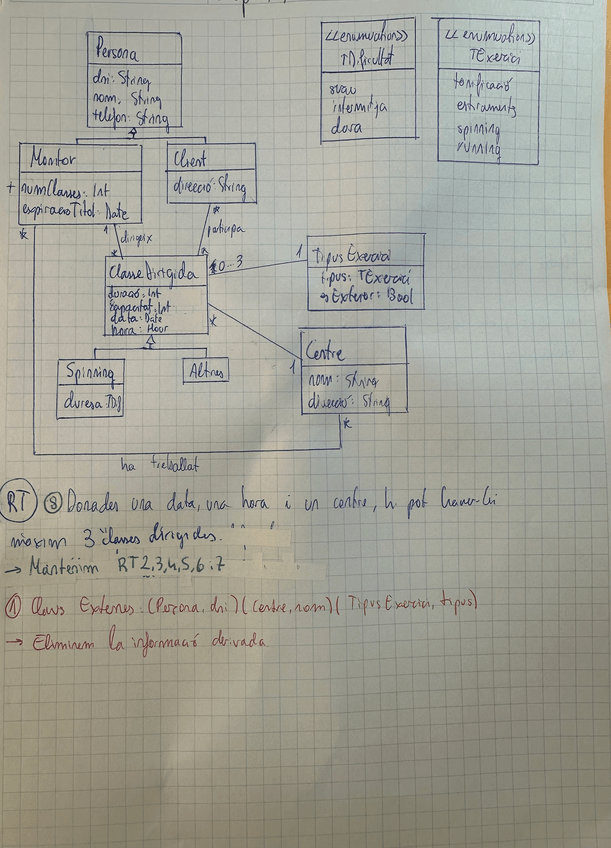 Persona
dni: String
nom: String
telefon: String
<<enumuation>>
TDificultat
suau
intermitja
dura
<<enumuation>>
TExercici
tonificació
estiraments
spinning
running
Monitor
+ numClasses: Int
expiracioTitol: Date
*
Client
direcció: String
*
participa
*
1
dirigeix
*
ClasseDirigida
duració: Int
capacitat: Int
data: Date
hora: Hour
0...3
1
TipusExercici
tipus: TExercici
esExterior: Bool
*
1
Centre
nom: String
direcció: String
*
Spinning
duresa: TDif
Altres
ha treballat
RT ⑧ Donades una data, una hora i un centre, hi pot haver-hi
màxim 3 classes dirigides.
→ Mantenim RT 2,3,4,5,6 i 7
① Claus Externes: (Persona, dni) (Centre, nom) (TipusExercici, tipus)
→ Eliminem la informació derivada